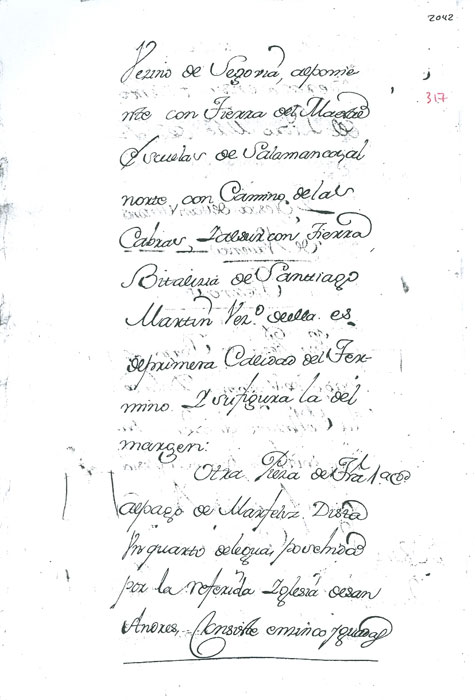 2042
317
Vezino de Segovia, alponie
nte con Tierra del Maestre
Escuelas de Salamanca, al
norte, con Camino de las
Cabras, Yalsur con Tierra
Bitalizia de Santtiago
Martin Vez.º deella. es
deprimera Calidad del Ter-
mino Y sufigura la del
margen:
Otra Pieza de Trã
alpago de Dista
Vn quarto delegua, posehida
por la referida Yglesia desan
Andres, Consiste en Yguadas